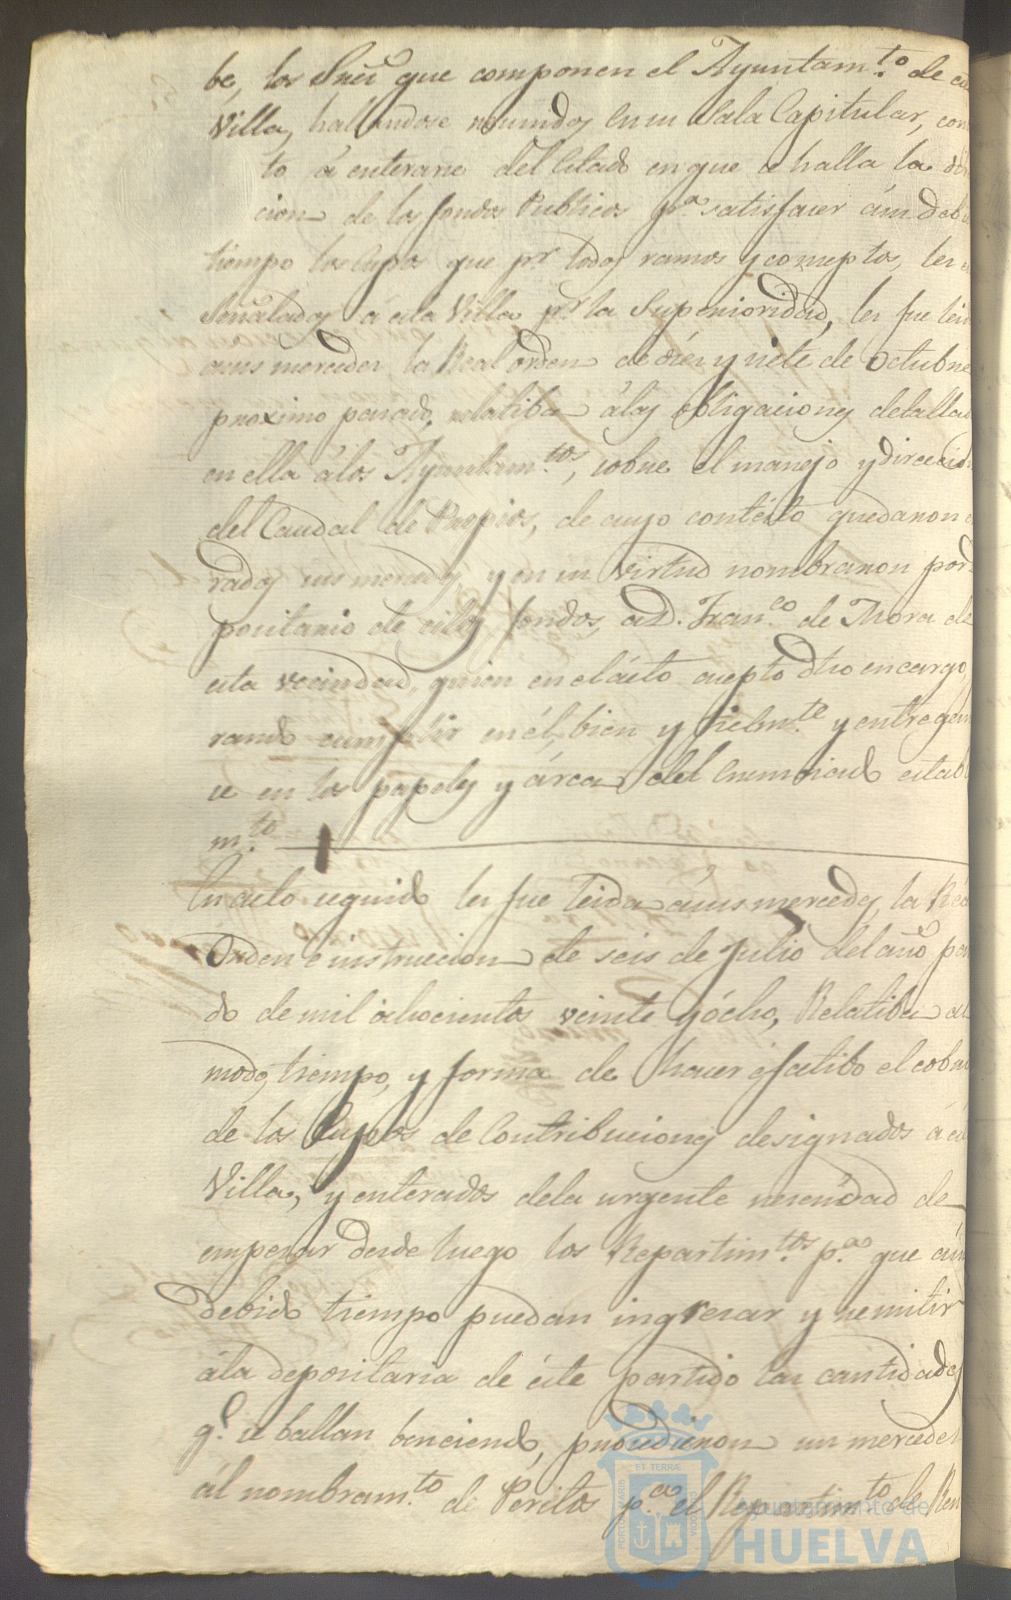 be, los Sres que componen el Ayuntam.to de
Villa, hallandose reunidos en su Sala Capitular,
to á enterarse del Estado en que se halla la
cion de los fondos Publicos p.a satisfacer
tiempo los Cupos que p.r todos ramos y conceptos,
Señalados á esta Villa p.r la Superioridad, les fue
á sus mercedes la Real orden de diez y siete de Octubre
proximo pasado, relatiba á las obligaciones
en ella á los Ayuntam.tos, sobre el manejo y
del Caudal de Propios, de cuyo contésto quedaron
rados sus mercedes, y en su virtud nombraron por
positario de dichos fondos, a D. Fran.co de Mora de
esta vecindad, quien en el ácto acepto dho encargo,
rando cumplir en él, bien y fielm.te y
se en los papeles y árca del
m.to
En acto seguido les fue leida á sus mercedes, la
Orden e instruccion de seis de Julio del año
do de mil ochocientos veinte y ócho, Relatiba
modo, tiempo, y forma de hacer efectibo el
de los Cupos de Contribuciones designados á
Villa, y enterados de la urgente necesidad de
empesar desde luego los Repartim.tos p.a que
debido tiempo puedan ingresar y remitir
á la depositaria de éste partido las cantidades
q.e se hallan benciendo, procedieron sus mercedes
ál nombram.to de Peritos p.a el Repartim.to de
Ayuntamiento de
HUELVA